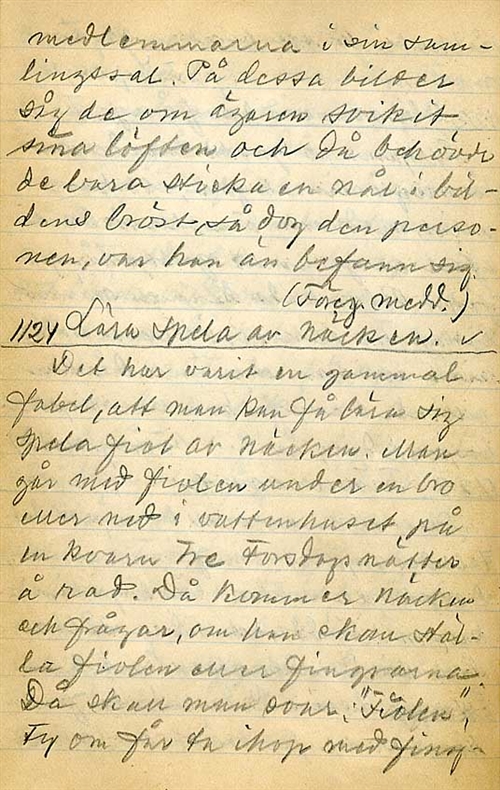 medlemmarna i sin sam-
lingssal. På dessa bilder
såg de om ägaren svikit
sina löften och då behövde
de bara sticka en nål i bil-
dens bröst, så dog den perso-
nen, var han än befann sig.
(Föreg. medd.)
1124 Lära spela av näcken. ✓
Det har varit en gammal
fabel, att man kan få lära sig
spela fiol av näcken. Man
går med fiolen under en bro
eller ned i vattenhuset på
en kvarn tre torsdagsnätter
å rad. Då kommer näcken
och frågar, om han skall stäl-
la fiolen eller fingrarna.
Då skall man svara: "Fiolen",
Ty om får ta ihop med fing-